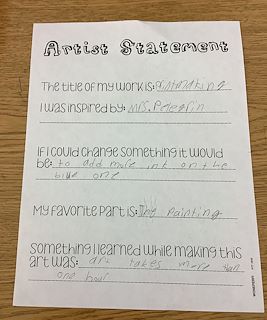 Artist Statement
The title of my work is: printmaking
I was inspired by: Mrs. Pelegrin
If I could change something it would
be: to add more ink on the
blue one
My favorite part is: The Painting
Something I learned while making this
art was: art takes more than
one hour